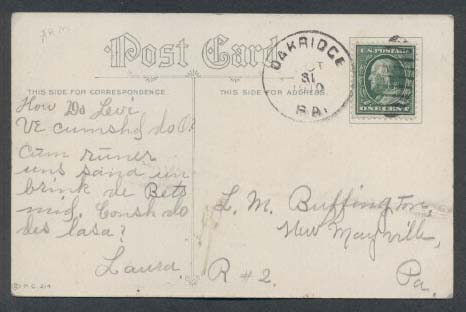 Post Card
OAKRIDGE
OCT
31
1910
PA.
U.S. POSTAGE
ONE CENT
THIS SIDE FOR CORRESPONDENCE.
THIS SIDE FOR ADDRESS.
How Do Levi
Ve cumshd do O?
Cum runer
uns sand un
brink de Bets
mid. Consh do
des lasa?
Laura
L. M. Buffington,
New Mayville,
R # 2. Pa.
P.C. 214